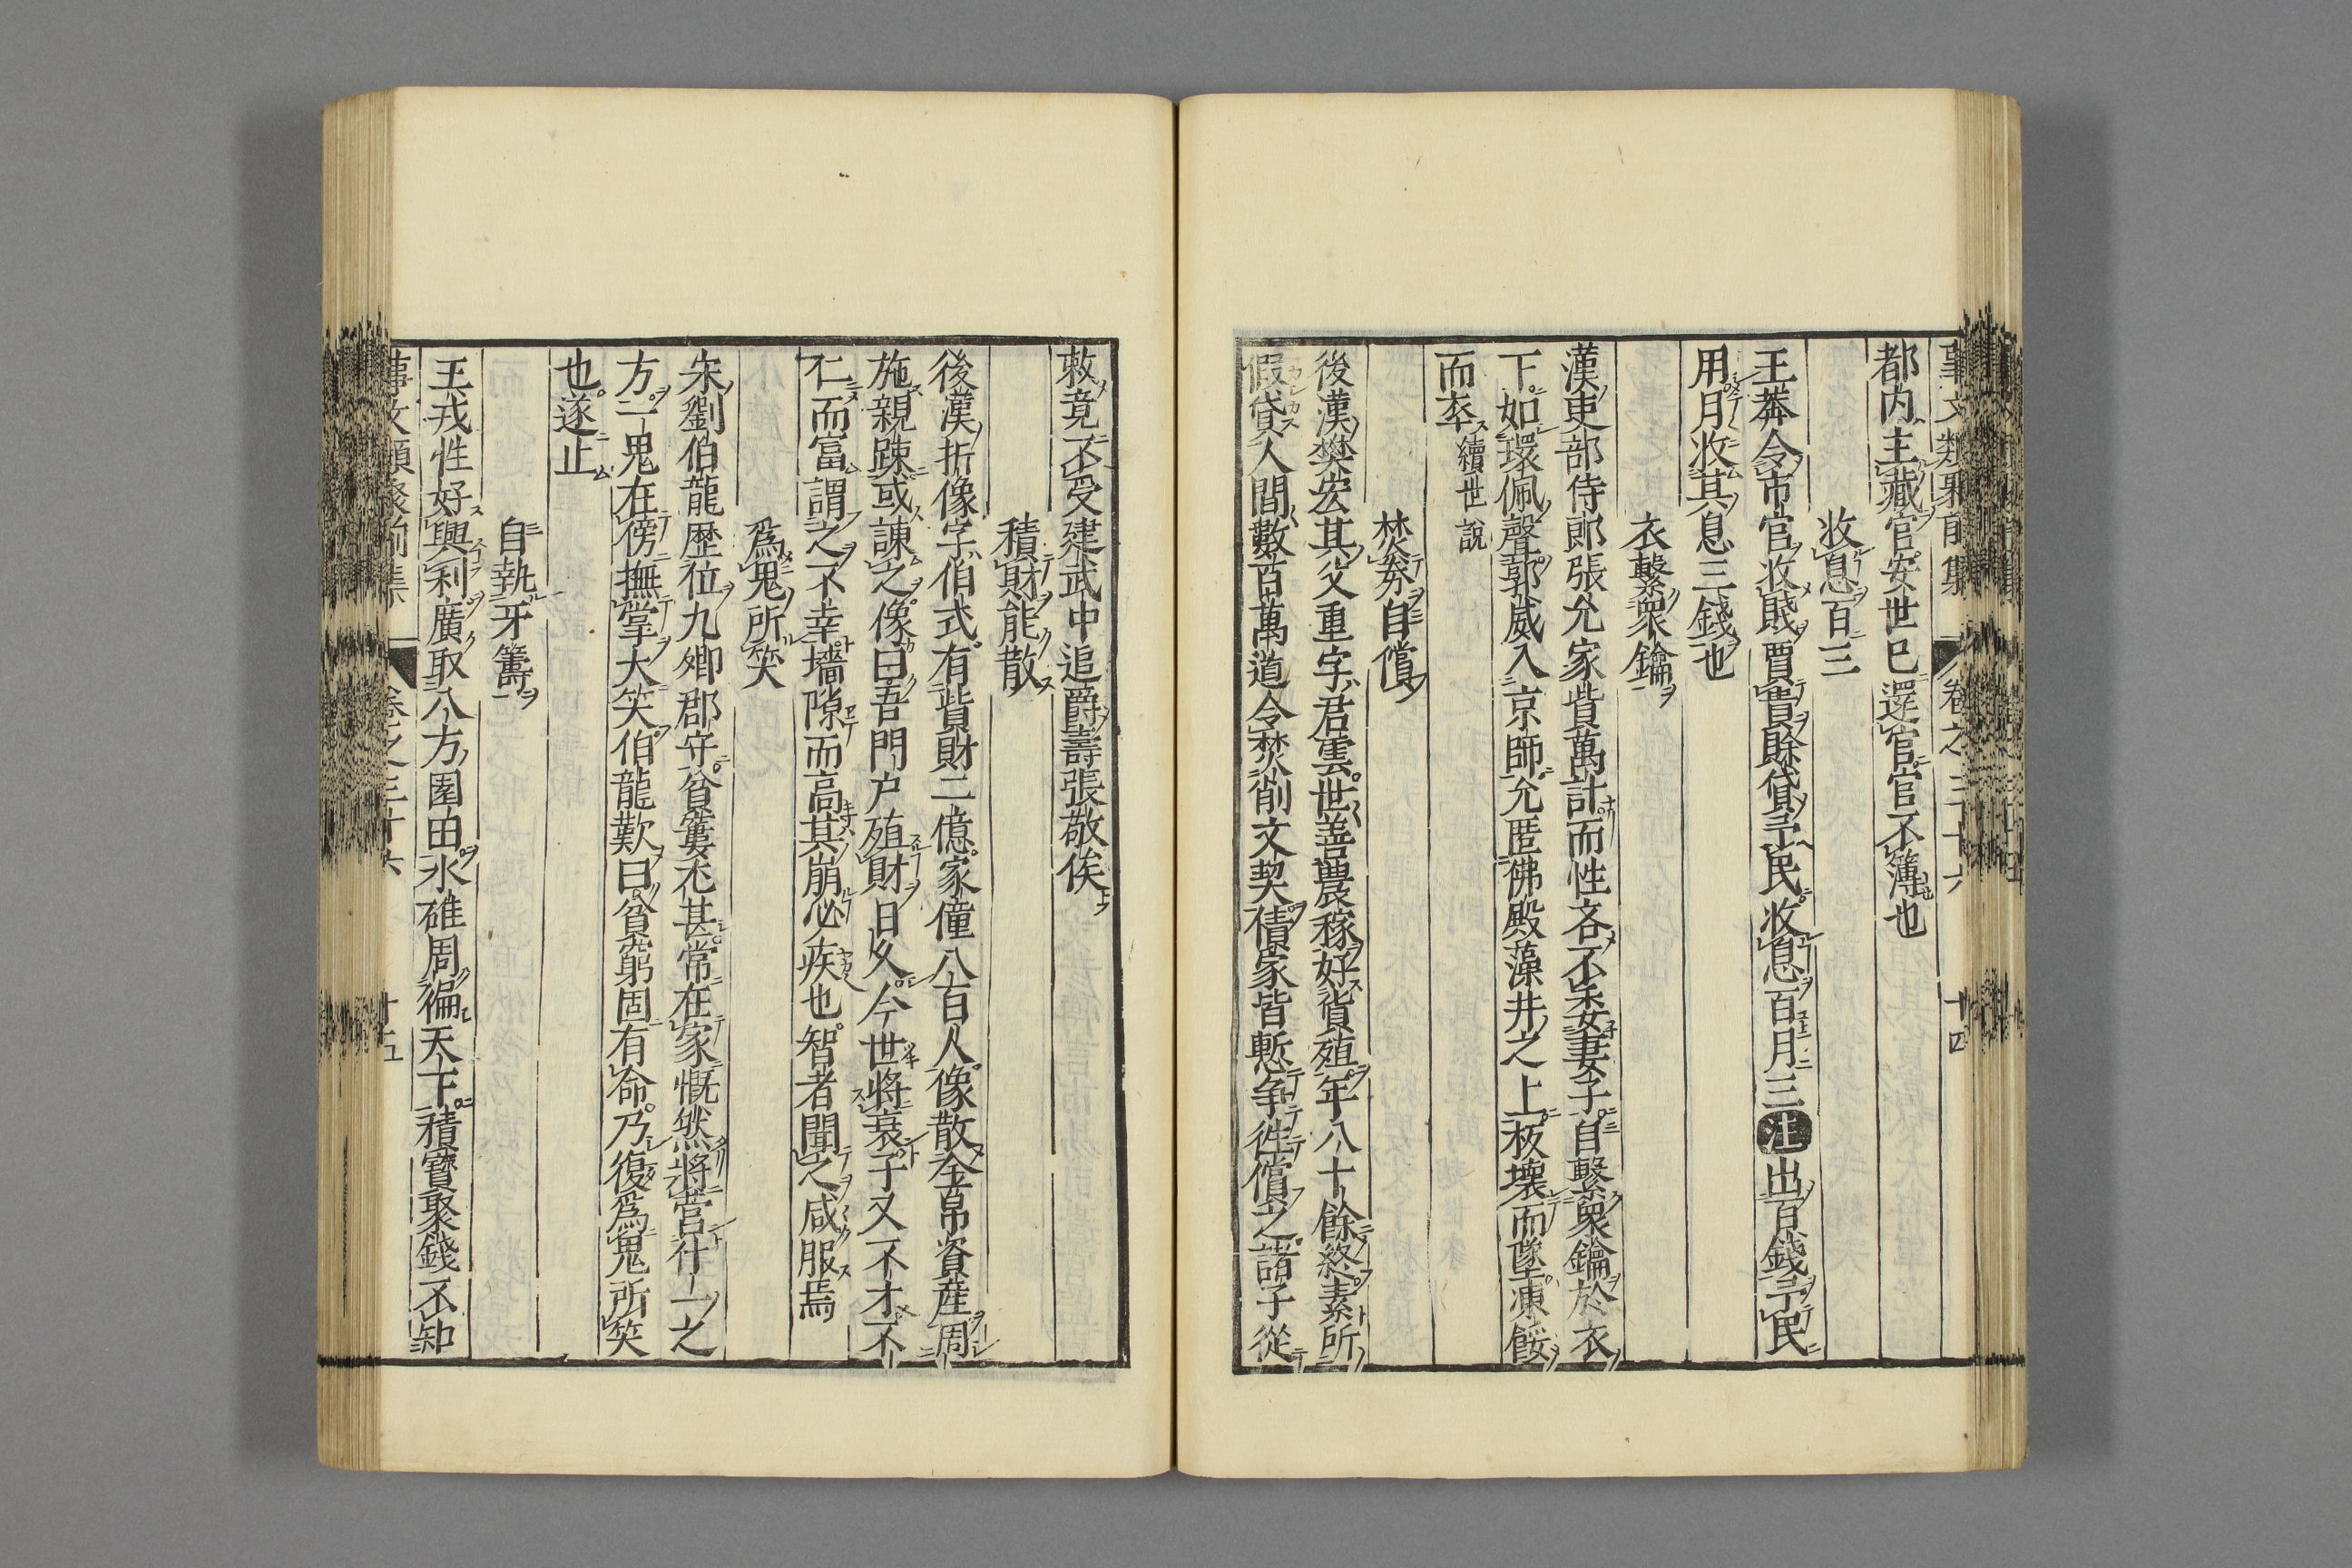 事文類聚前集 卷之三十六 十四
都内主藏官安世已還官官不簿也
收息百三
王莽令市官收賤賣貴賒貸予民收息百月三注出百錢予民
用月收其息三錢也
衣繫衆鑰
漢吏部侍郎張允家貲萬計而性吝不委妻子自繫衆鑰於衣
下如環佩聲郭威入京師允匿佛殿藻井之上板壞而墜凍餒
而卒續世說
焚券自償
後漢樊宏其父重字君雲世善農稼好貨殖年八十餘終素所
假貸人間數百萬遺令焚削文契債家皆慙争徃償之諸子從
敕竟不受建武中追爵壽張敬侯
積財能散
後漢折像字伯式有貲財二億家僮八百人像散金帛資産周
施親踈或諌之像曰吾門户殖財日久今世將衰子又不才不
仁而富謂之不幸墻隙而高其崩必疾也智者聞之咸服焉
爲鬼所笑
宋劉伯龍歴位九卿郡守貧窶尤甚常在家慨然將營什一之
方一鬼在傍撫掌大笑伯龍歎曰貧窮固有命乃復爲鬼所笑
也遂止
自執牙籌
王戎性好興利廣取八方園田水碓周徧天下積寶聚錢不知
事文類聚前集 卷之三十六 十五